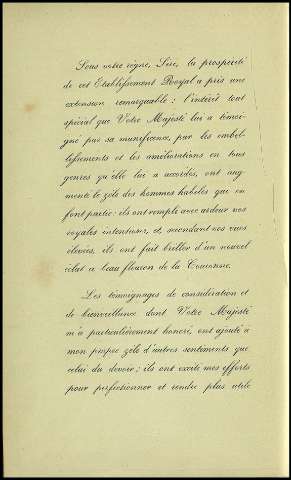 Sous votre règne, Sire, la prospérité
de cet Etablissement Royal a pris une
extension remarquable ; l'intérêt tout
spécial que Votre Majesté lui a témoi-
gné par sa munificence, par les embel-
lissements et les améliorations en tous
genres qu'elle lui a accordés, ont aug-
menté le zèle des hommes habiles qui en
font partie : ils ont rempli avec ardeur vos
royales intentions, et, secondant vos vues
élevées, ils ont fait briller d'un nouvel
éclat ce beau fleuron de la Couronne.
Les témoignages de considération et
de bienveillance dont Votre Majesté
m'a particulièrement honoré, ont ajouté à
mon propre zèle d'autres sentements que
celui du devoir ; ils ont excité mes efforts
pour perfectionner et rendre plus utile